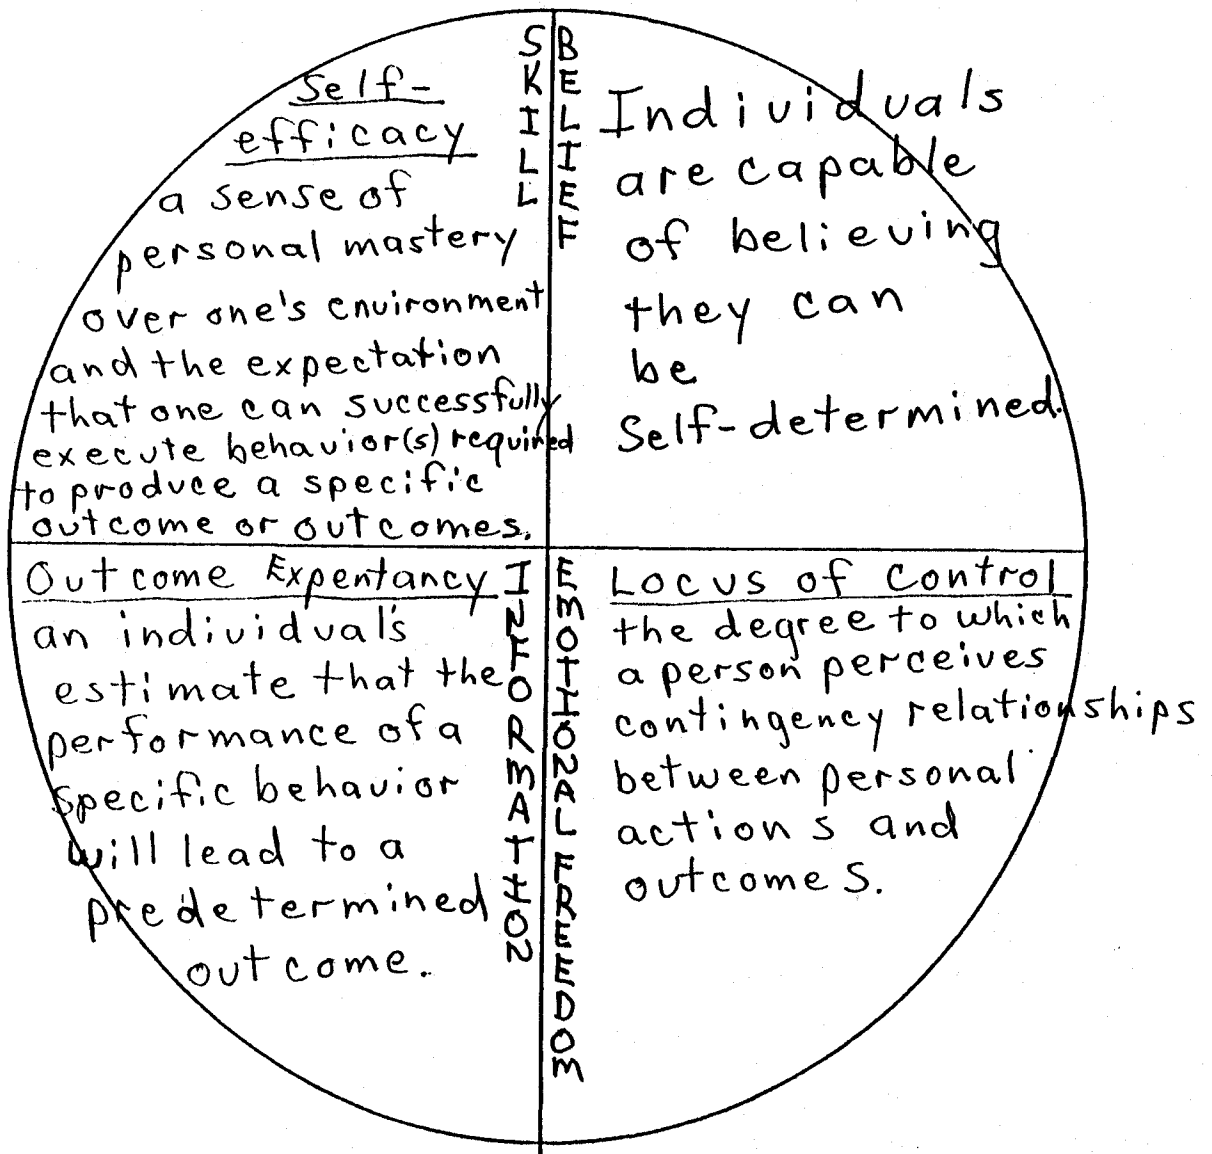 SKILL
Self-
efficacy
a sense of
personal mastery
over one's environment
and the expectation
that one can successfully
execute behavior(s) required
to produce a specific
outcome or outcomes.
BELIEF
Individuals
are capable
of believing
they can
be
Self-determined.
Outcome Expentancy
an individual's
estimate that the
performance of a
specific behavior
will lead to a
predetermined
outcome.
INFORMATION
EMOTIONAL FREEDOM
Locus of Control
the degree to which
a person perceives
contingency relationships
between personal
actions and
outcomes.